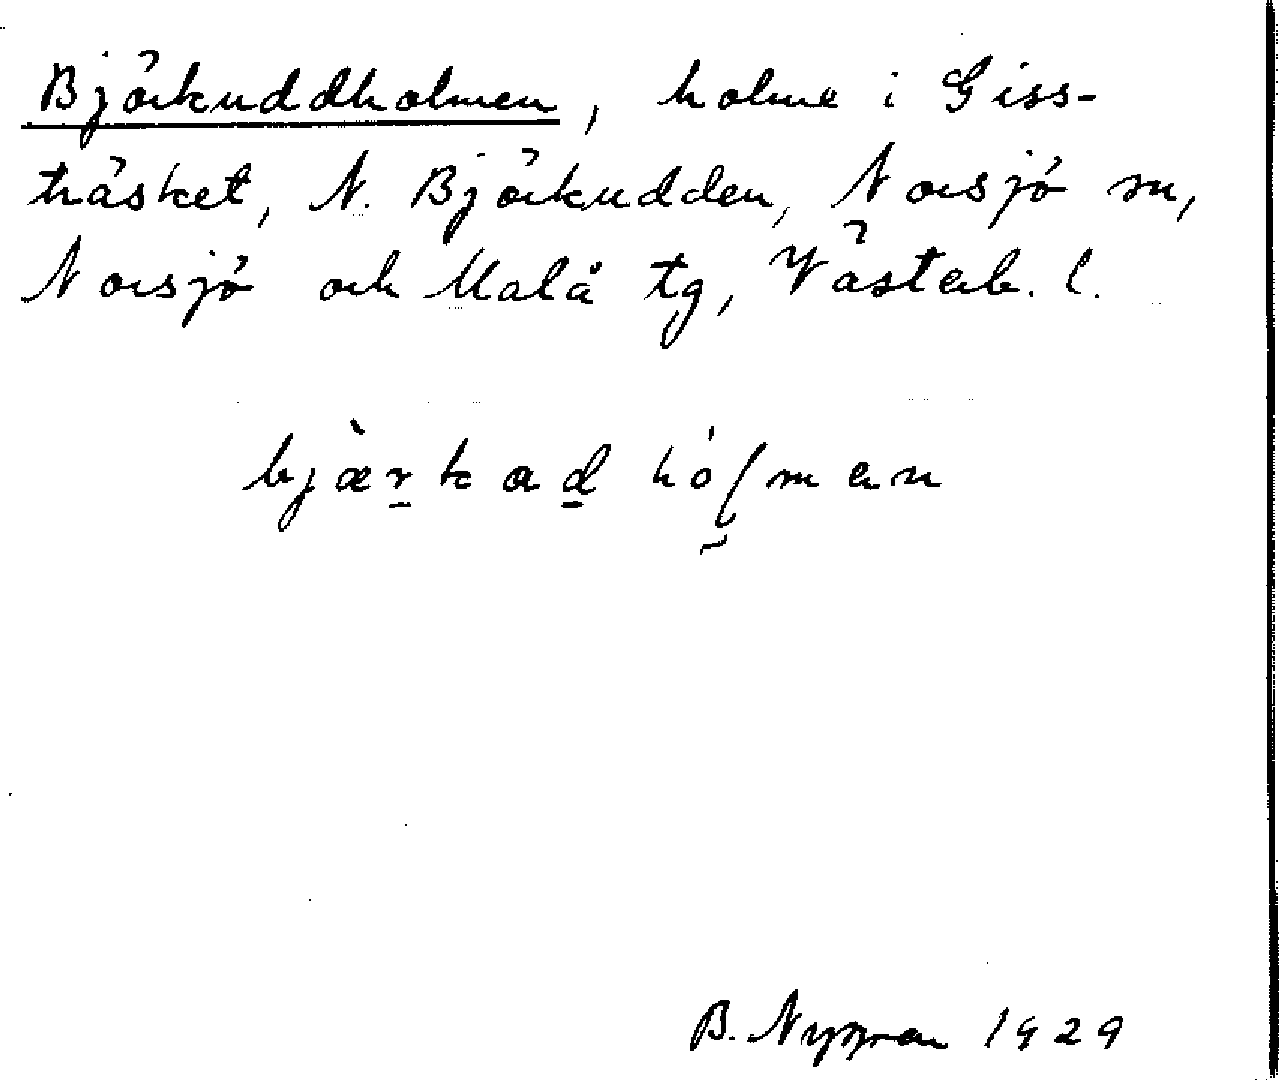 Björkuddholmen, holme i Giss-
träsket, N. Björkudden, Norsjö sn,
Norsjö och Malå tg, Västerb. l.
bjæ̀r̠kad̠ hóɭmen
B. Nygren 1929